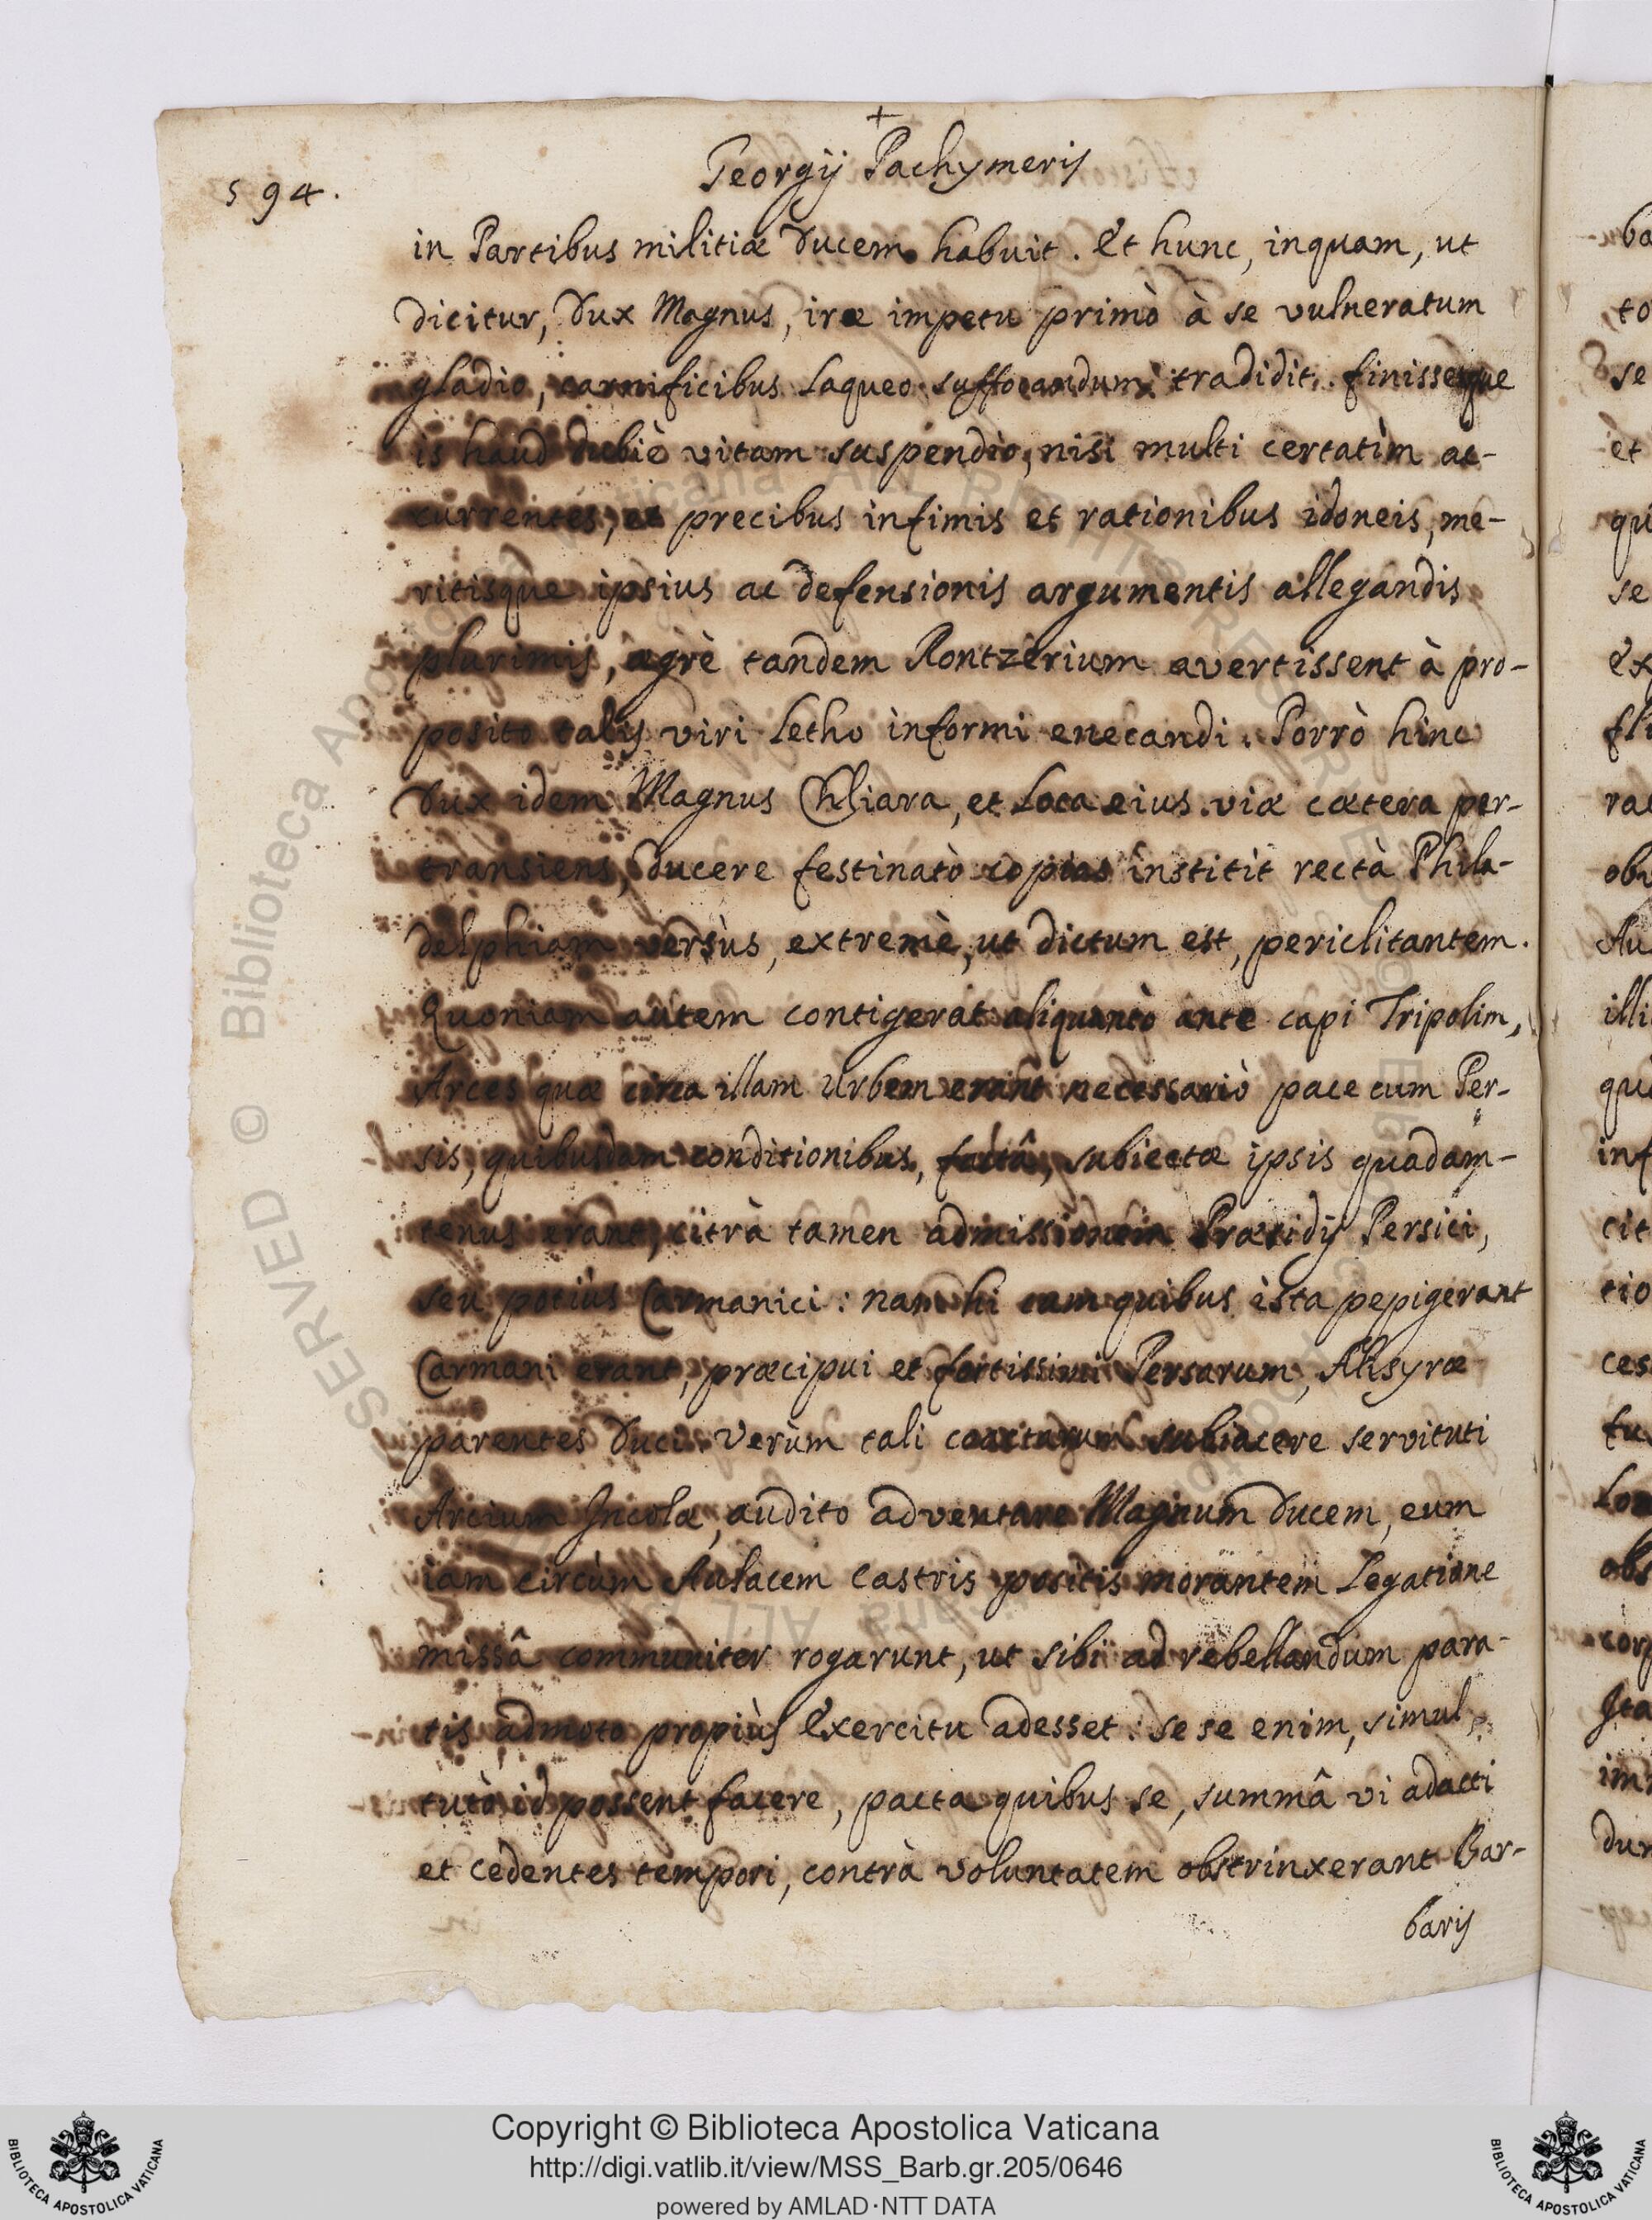 +
594.
Georgij Pachymeris
in Partibus militiæ Ducem habuit. Et hunc, inquam, ut
dicitur, Dux Magnus, iræ impetu primò à se vulneratum
gladio, carnificibus laqueo suffocandum tradidit. finissetque
is haud dubiè vitam suspendio, nisi multi certatìm ac-
currentes, et precibus infimis et rationibus idoneis, me-
ritisque ipsius ac defensionis argumentis allegandis
plurimis, ægrè tandem Rontzerium avertissent à pro-
posito talis viri letho informi enecandi. Porrò hinc
Dux idem Magnus Chliara, et loca eius viæ cætera per-
transiens, ducere festinatò copias institit rectà Phila-
delphiam versùs, extremè, ut dictum est, periclitantem.
Quoniam autem contigerat aliquantò ante capi Tripolim,
Arces quæ circa illam Urbem erant necessariò pace cum Per-
sis, quibusdam conditionibus, factâ, subiectæ ipsis quadam-
tenus erant, citrà tamen admissionem Præsidij Persici,
seu potiùs Carmanici: nam hi cum quibus ista pepigerant
Carmani erant, præcipui et fortissimi Persarum, Alisyræ
parentes Duci. Verùm tali coactarum subiacere servituti
Arcium Incolæ, audito adventare Magnum Ducem, eum
iam circùm Aulacem castris positis morantem Legatione
missâ communiter rogarunt, ut sibi ad rebellandum para-
tis admoto propiùs Exercitu adesset: se se enim, simul
tutò id possent facere, pacta quibus se, summâ vi adacti
et cedentes tempori, contrà voluntatem obstrinxerant Bar-
baris
ba
to
se
et
qu
se
Ex
fli
ra
ob
Au
illi
qu
inf
cit
tio
ces
tu
Lo
obs
corp
Ita
im
dur
© Biblioteca Apostolica Vaticana ALL RIGHTS RESERVED
Copyright © Biblioteca Apostolica Vaticana
http://digi.vatlib.it/view/MSS_Barb.gr.205/0646
powered by AMLAD·NTT DATA
BIBLIOTECA APOSTOLICA VATICANA
BIBLIOTECA APOSTOLICA VATICANA